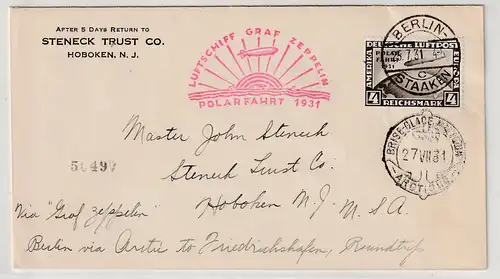 AFTER 5 DAYS RETURN TO
STENECK TRUST CO.
HOBOKEN, N. J.
LUFTSCHIFF GRAF ZEPPELIN
POLARFAHRT 1931
BERLIN-
7.31
C
STAAKEN
DEUTSCHE LUFTPOST
AMERIKA
EUROPA
POLAR
FAHRT
1931
4
REICHSMARK
4
27 VII 31
Master John Steneck
56497
Steneck Trust Co.
Hoboken N.J. U.S.A.
Via "Graf Zeppelin"
Berlin via Arctic to Friedrichshafen, Roundtrip